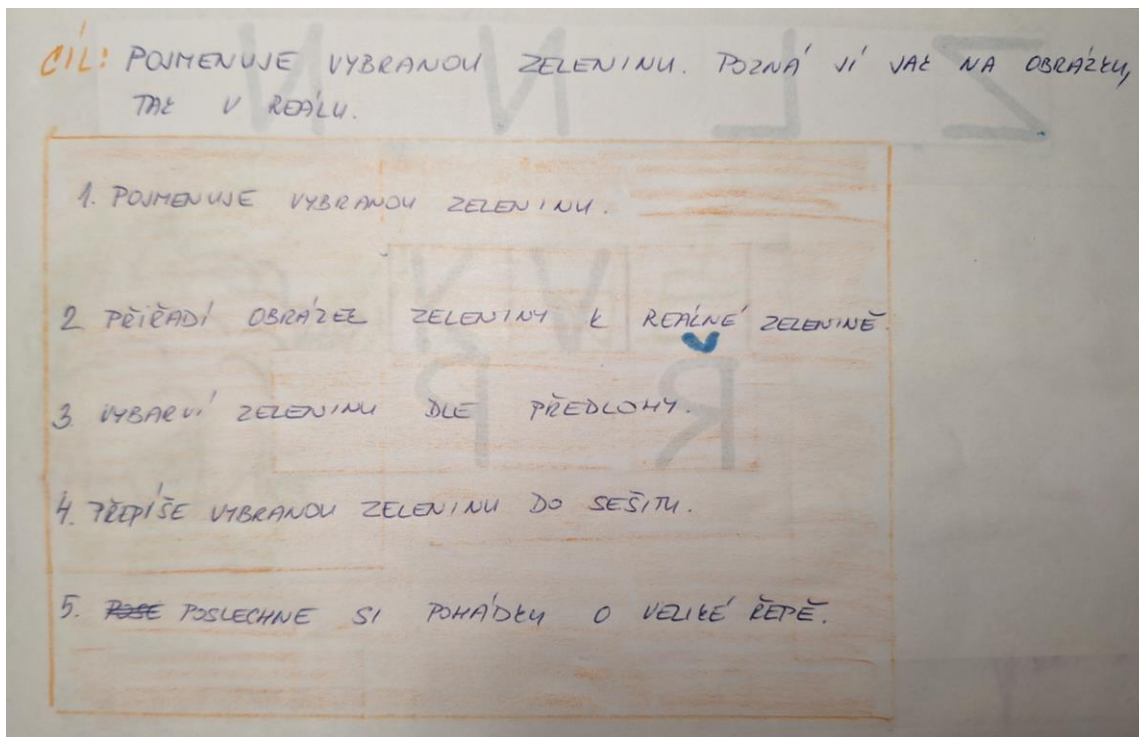 CÍL: POJMENUJE VYBRANOU ZELENINU. POZNÁ JÍ JAK NA OBRÁZKU,
TAK V REÁLU.
1. POJMENUJE VYBRANOU ZELENINU.
2 PŘIŘADÍ OBRÁZEK ZELENINY K REÁLNÉ ZELENINĚ.
3. VYBARVÍ ZELENINU DLE PŘEDLOHY.
4. PŘEPÍŠE VYBRANOU ZELENINU DO SEŠITU.
5. POSLECHNE SI POHÁDKU O VELIKÉ ŘEPĚ.